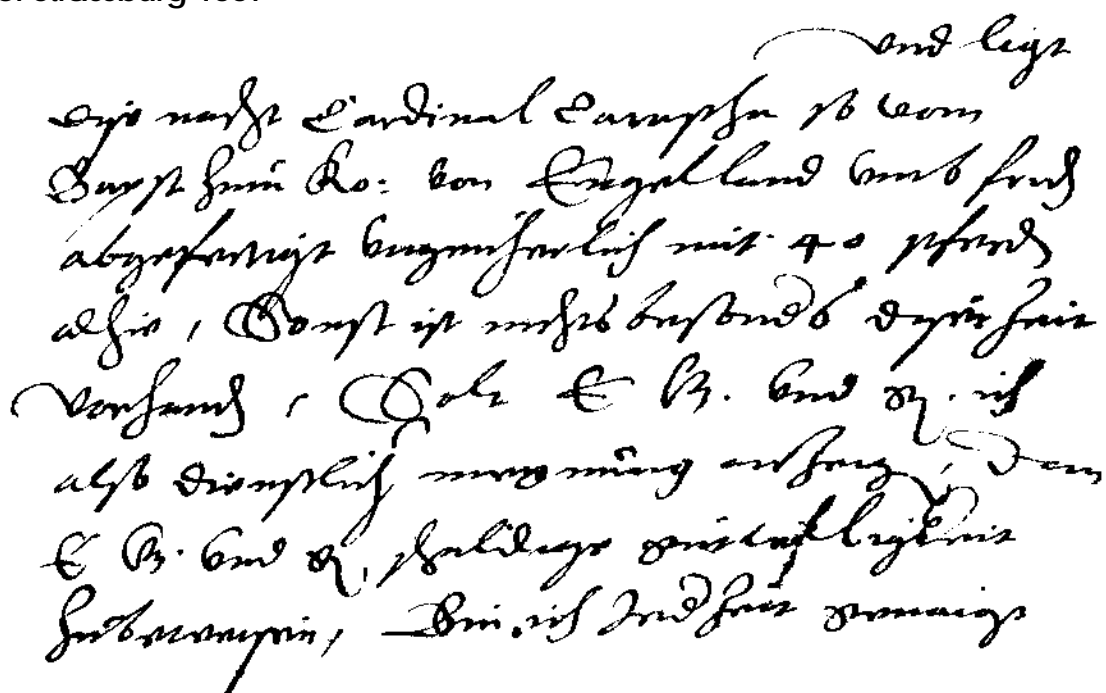 und ligt
dise nacht Cardinal Caraffa so vom
Bapst zum Ko: von Engelland umb frid
abgefertigt ungeuherlich mit 40 pferd
alhie, Sonst ist nichts besonders diser Zeit
vorhand, Solt E G. und g. ich
also dienstlich meynung anzeig, dem
E G. und g. schuldige
zubeweisen, Bin ich Jedzeit genaigt